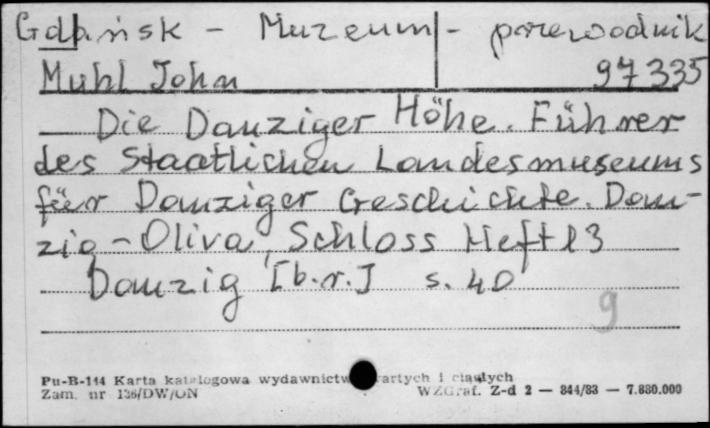 Gdańsk - Muzeum - przewodnik
Muhl John 97335
Die Danziger Höhe. Führer
des Staatlichen Landesmuseums
für Danziger Geschichte. Dan-
zig - Oliva, Schloss Heft 13
Danzig [b.r.] s. 40
9
Pu-B-114 Karta katalogowa wydawnictw zwartych i ciągłych
Zam. nr 136/DW/ON WZGraf. Z-d 2 — 844/83 — 7.880.000